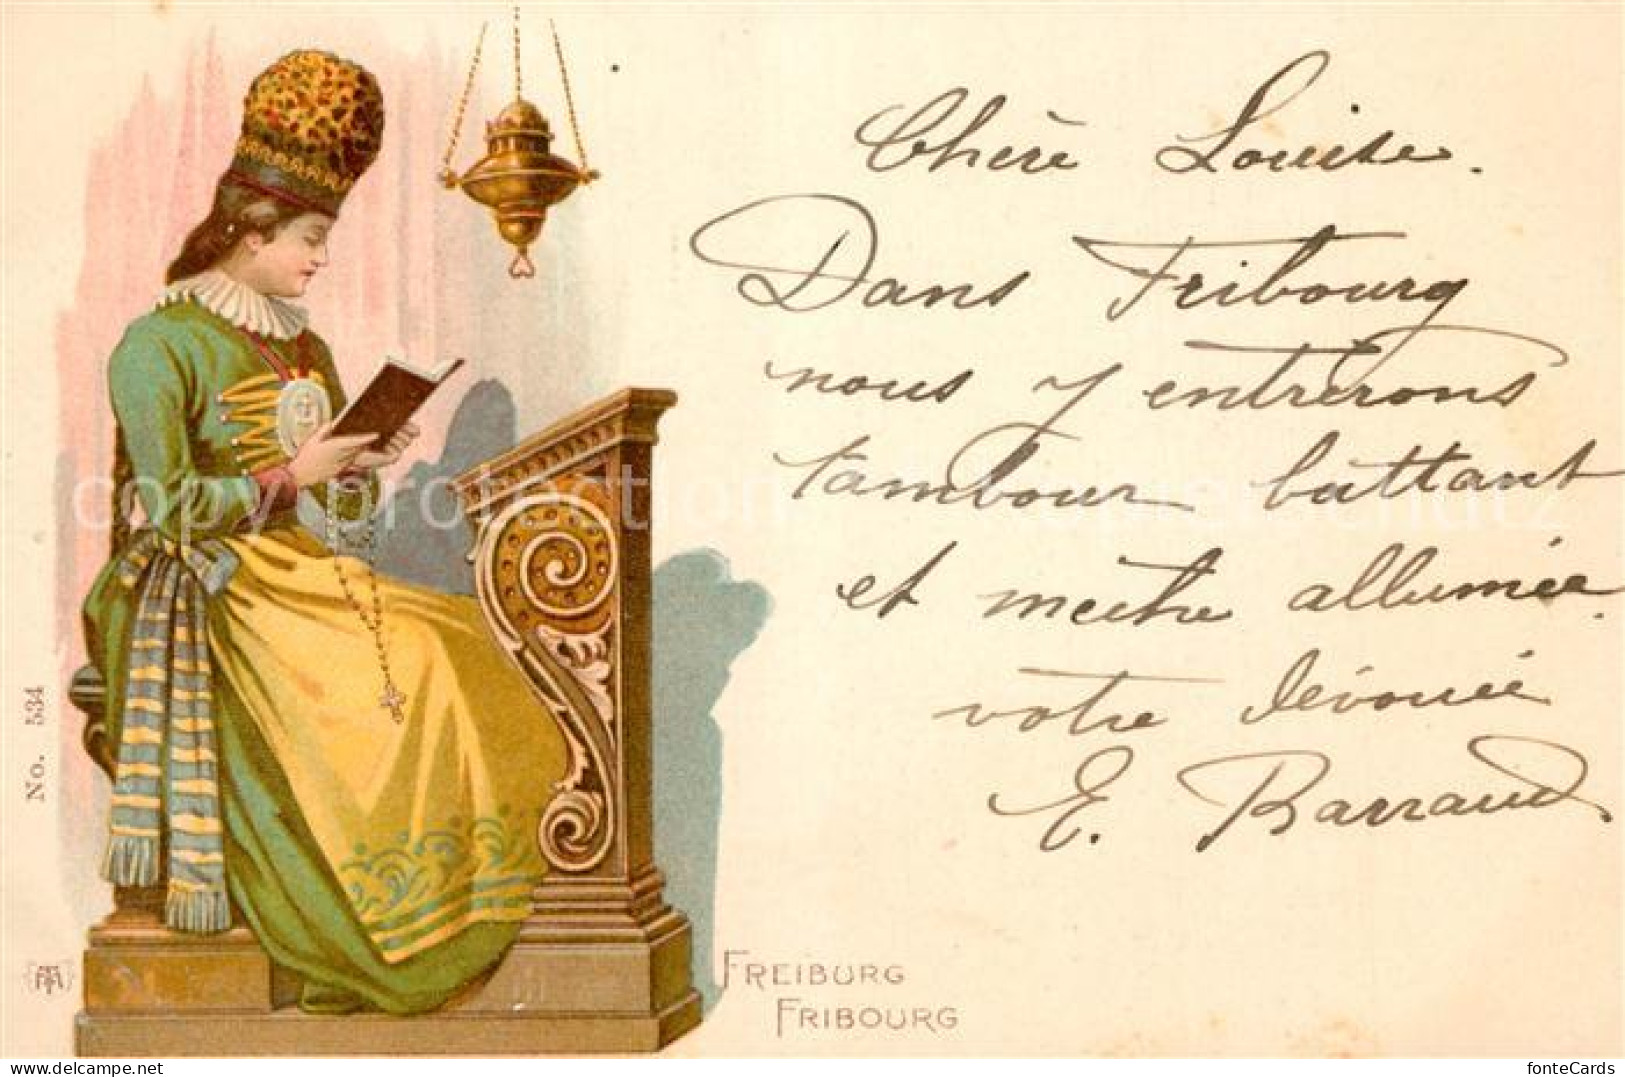 Chère Louise.
Dans Fribourg
nous y entrerons
tambour battant
et mèche allumée.
votre dévouée
E. Barraud
No. 534
FREIBURG
FRIBOURG
copyright protection
fonteCards